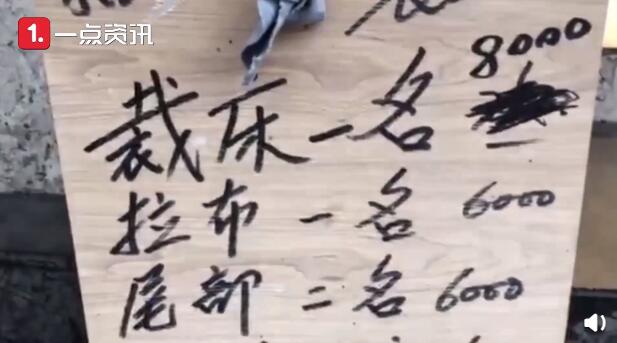 1. 一点资讯
8000
裁床一名
拉布一名 6000
尾部二名 6000